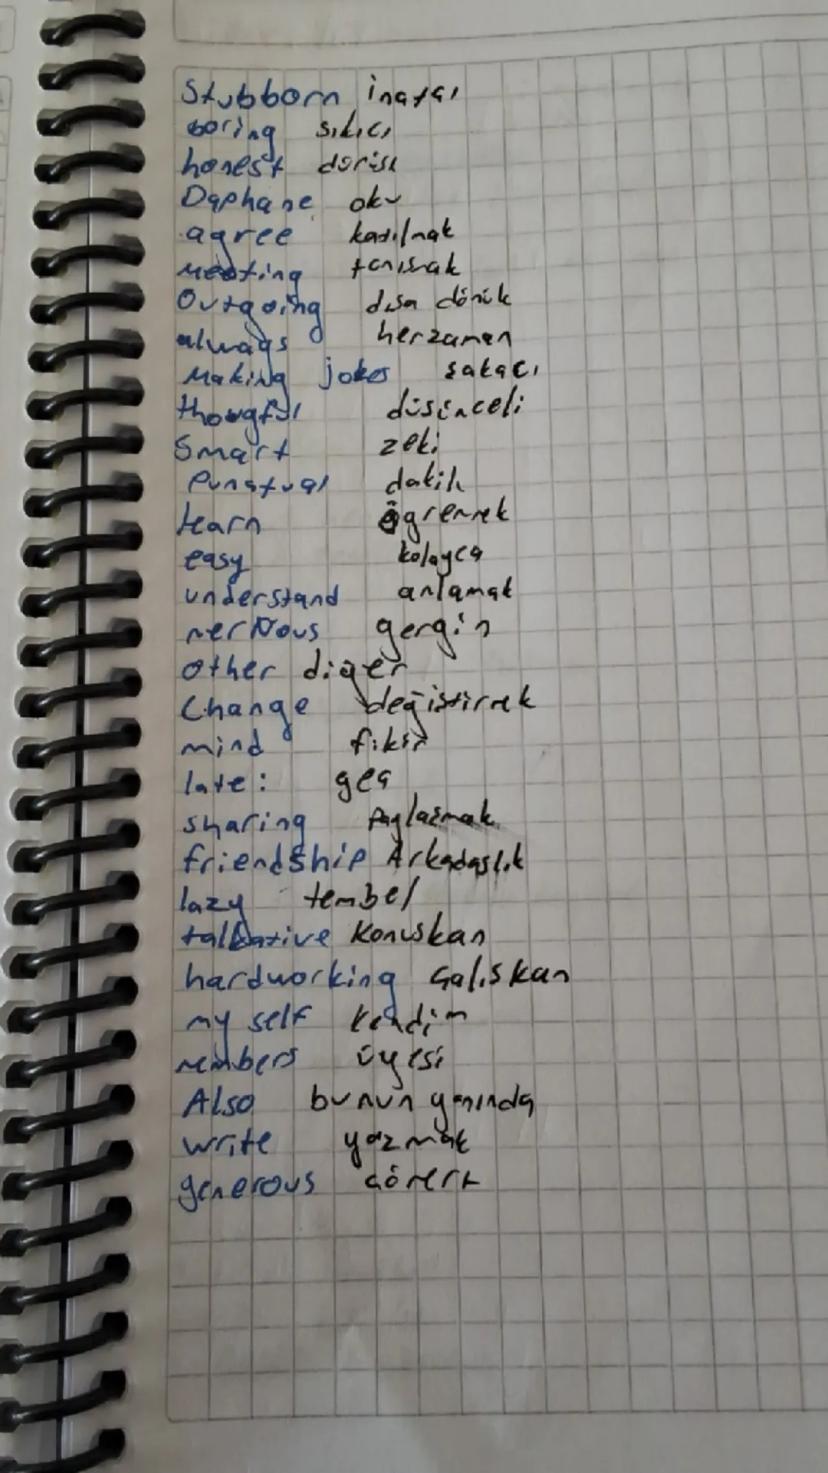 Stubborn inatçı
boring sıkıcı
honest dürüst
Daphane oku
agree katılmak
meeting tanısmak
Outgoing dısa dönük
always herzaman
Making jokes sakacı
thougful düsünceli
Smart zeki
Punatual dakik
learn ögrenmek
easy kolayca
understand anlamak
nerNous gergin
other diger
Change değistirmek
mind fikir
late: geç
sharing Paylasmak
friendship Arkadaslık
lazy tembel
talkative Konuskan
hardworking çalıskan
my self kendim
members üyesi
Also bunun yanında
write yazmak
generous cömert